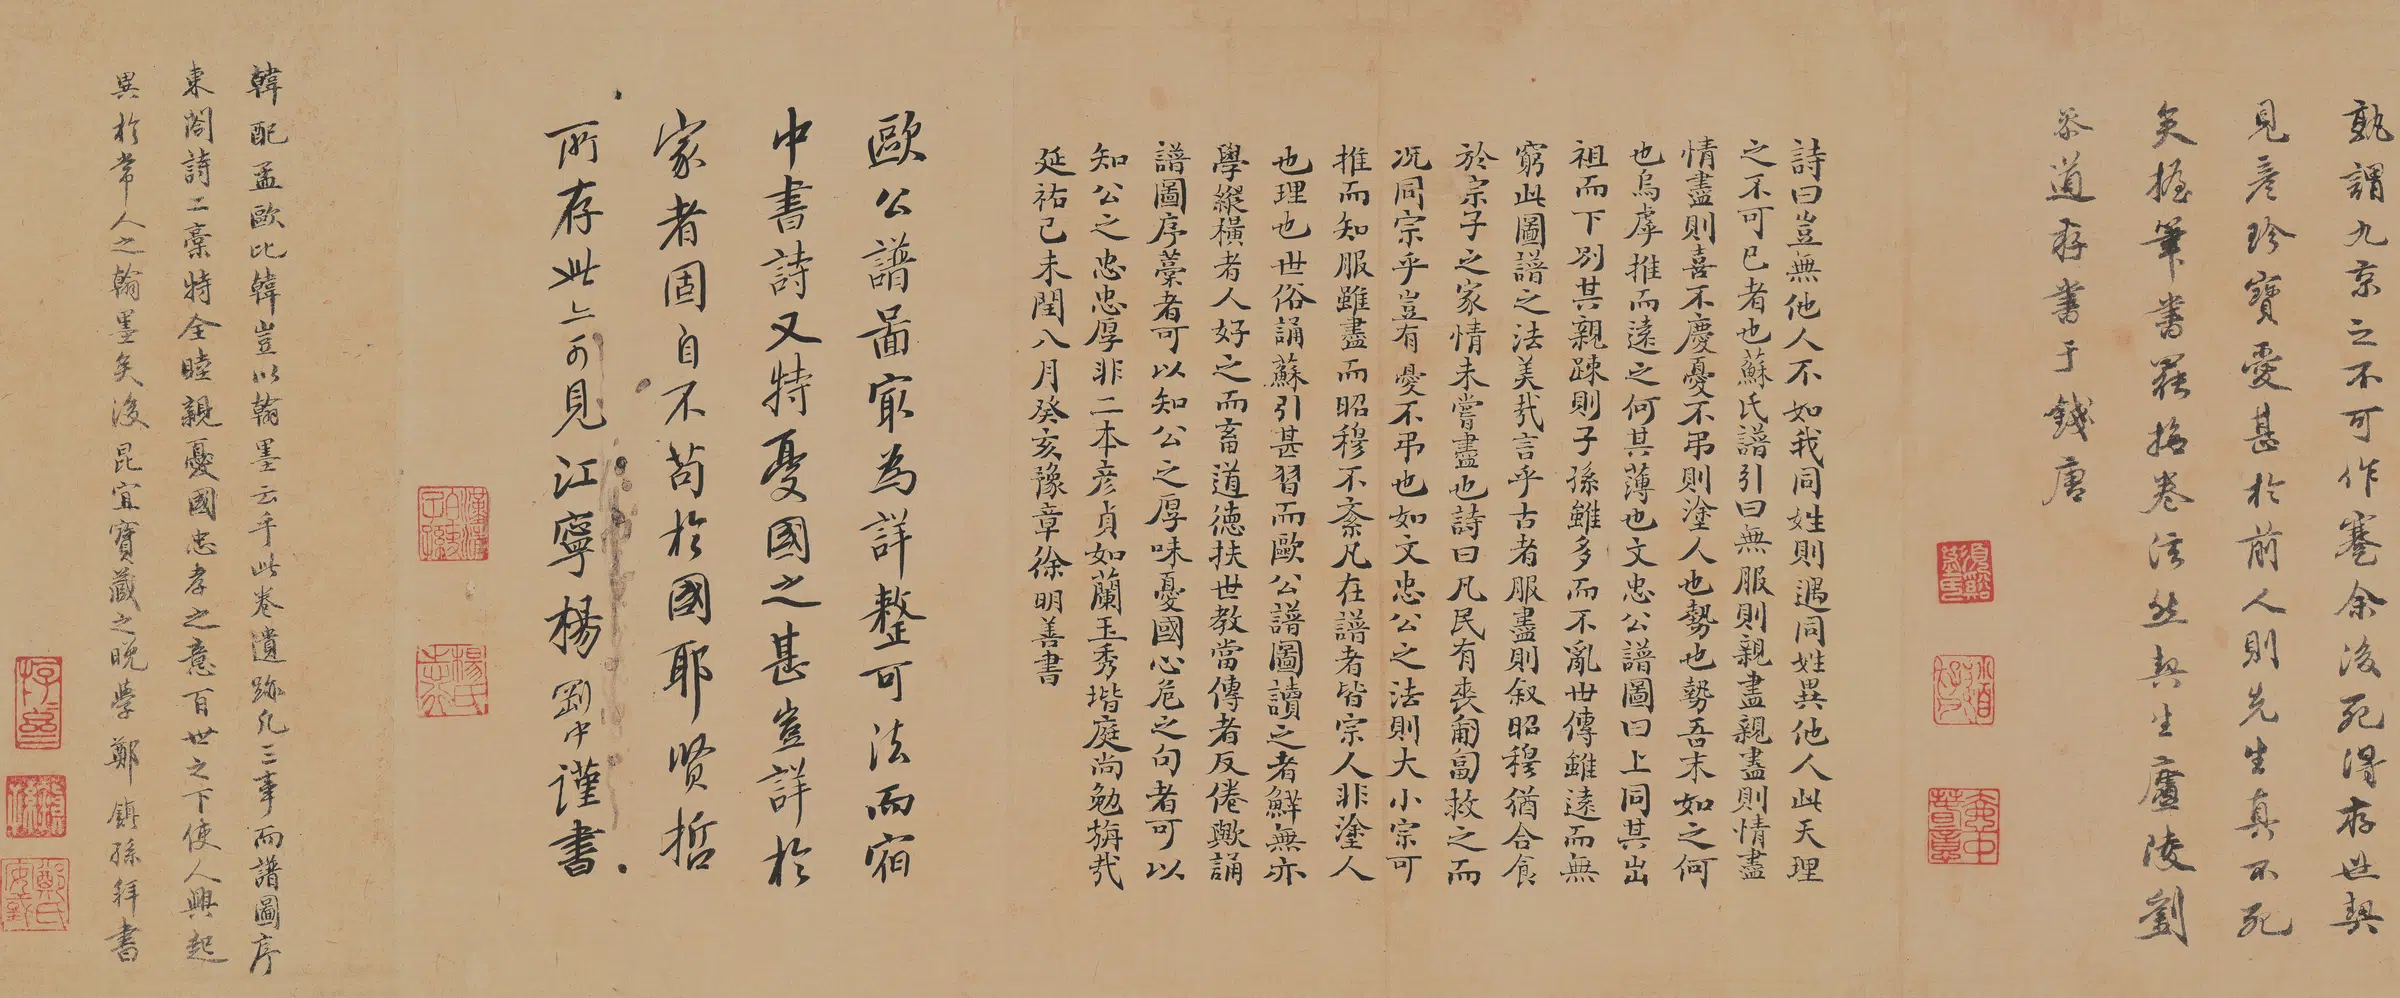 孰謂九京之不可作蹇余後死得存世契
見彥珍寶愛甚於前人則先生真不死
矣握筆書羅掩卷泫然契生廬陵劉
恭道存書于錢唐
詩曰豈無他人不如我同姓則遇同姓異他人此天理
之不可已者也蘇氏譜引曰無服則親盡親盡則情盡
情盡則喜不慶憂不弔則塗人也勢也勢吾末如之何
也烏虖推而遠之何其薄也文忠公譜圖曰上同其出
祖而下別其親踈則子孫雖多而不亂世傳雖遠而無
窮此圖譜之法美哉言乎古者服盡則叙昭穆猶合食
於宗子之家情未嘗盡也詩曰凡民有喪匍匐救之而
況同宗乎豈有憂不弔也如文忠公之法則大小宗可
推而知服雖盡而昭穆不紊凡在譜者皆宗人非塗人
也理也世俗誦蘇引甚習而歐公譜圖讀之者鮮無亦
學縱橫者人好之而畜道德扶世教當傳者反倦歟誦
譜圖序藁者可以知公之厚味憂國心危之句者可以
知公之忠忠厚非二本彥貞如蘭玉秀堦庭尚勉旃哉
延祐己未閏八月癸亥豫章徐明善書
歐公譜啚冣為詳整可法而宿
中書詩又特憂國之甚豈詳於
家者固自不苟於國耶賢哲
所存此亦可見江寧楊剛中謹書
韓配孟歐比韓豈以翰墨云乎此卷遺跡凡三事而譜圖序
東閣詩二藁特全睦親憂國忠孝之意百世之下使人興起
異於常人之翰墨矣後昆宜寶藏之晚學鄭鎮孫拜書
楊氏志行